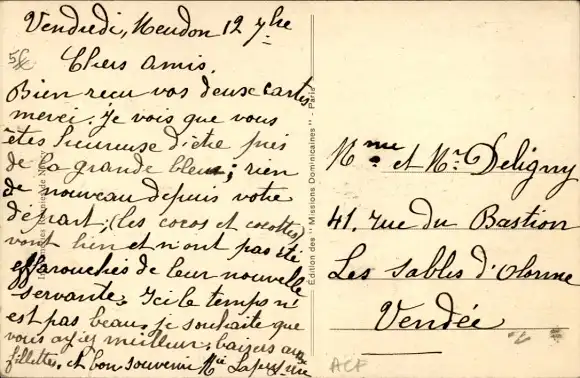 Vendredi, Meudon 12 7bre
Chers amis.
Bien reçu vos deux cartes
merci. Je vois que vous
êtes heureuse d'être près
de la grande bleue; rien
de nouveau depuis votre
départ; (les cocos et cocottes)
vont bien et n'ont pas été
effarouchés de leur nouvelle
servante. Ici le temps n'
est pas beau, je souhaite que
vous ayiez meilleur; baizers aux
fillettes, et bon souvenir
Édition des "Missions Dominicaines" - Paris
Mme et Mr. Deligny
41. rue du Bastion
Les Sables d'Olonne
Vendée
ACF